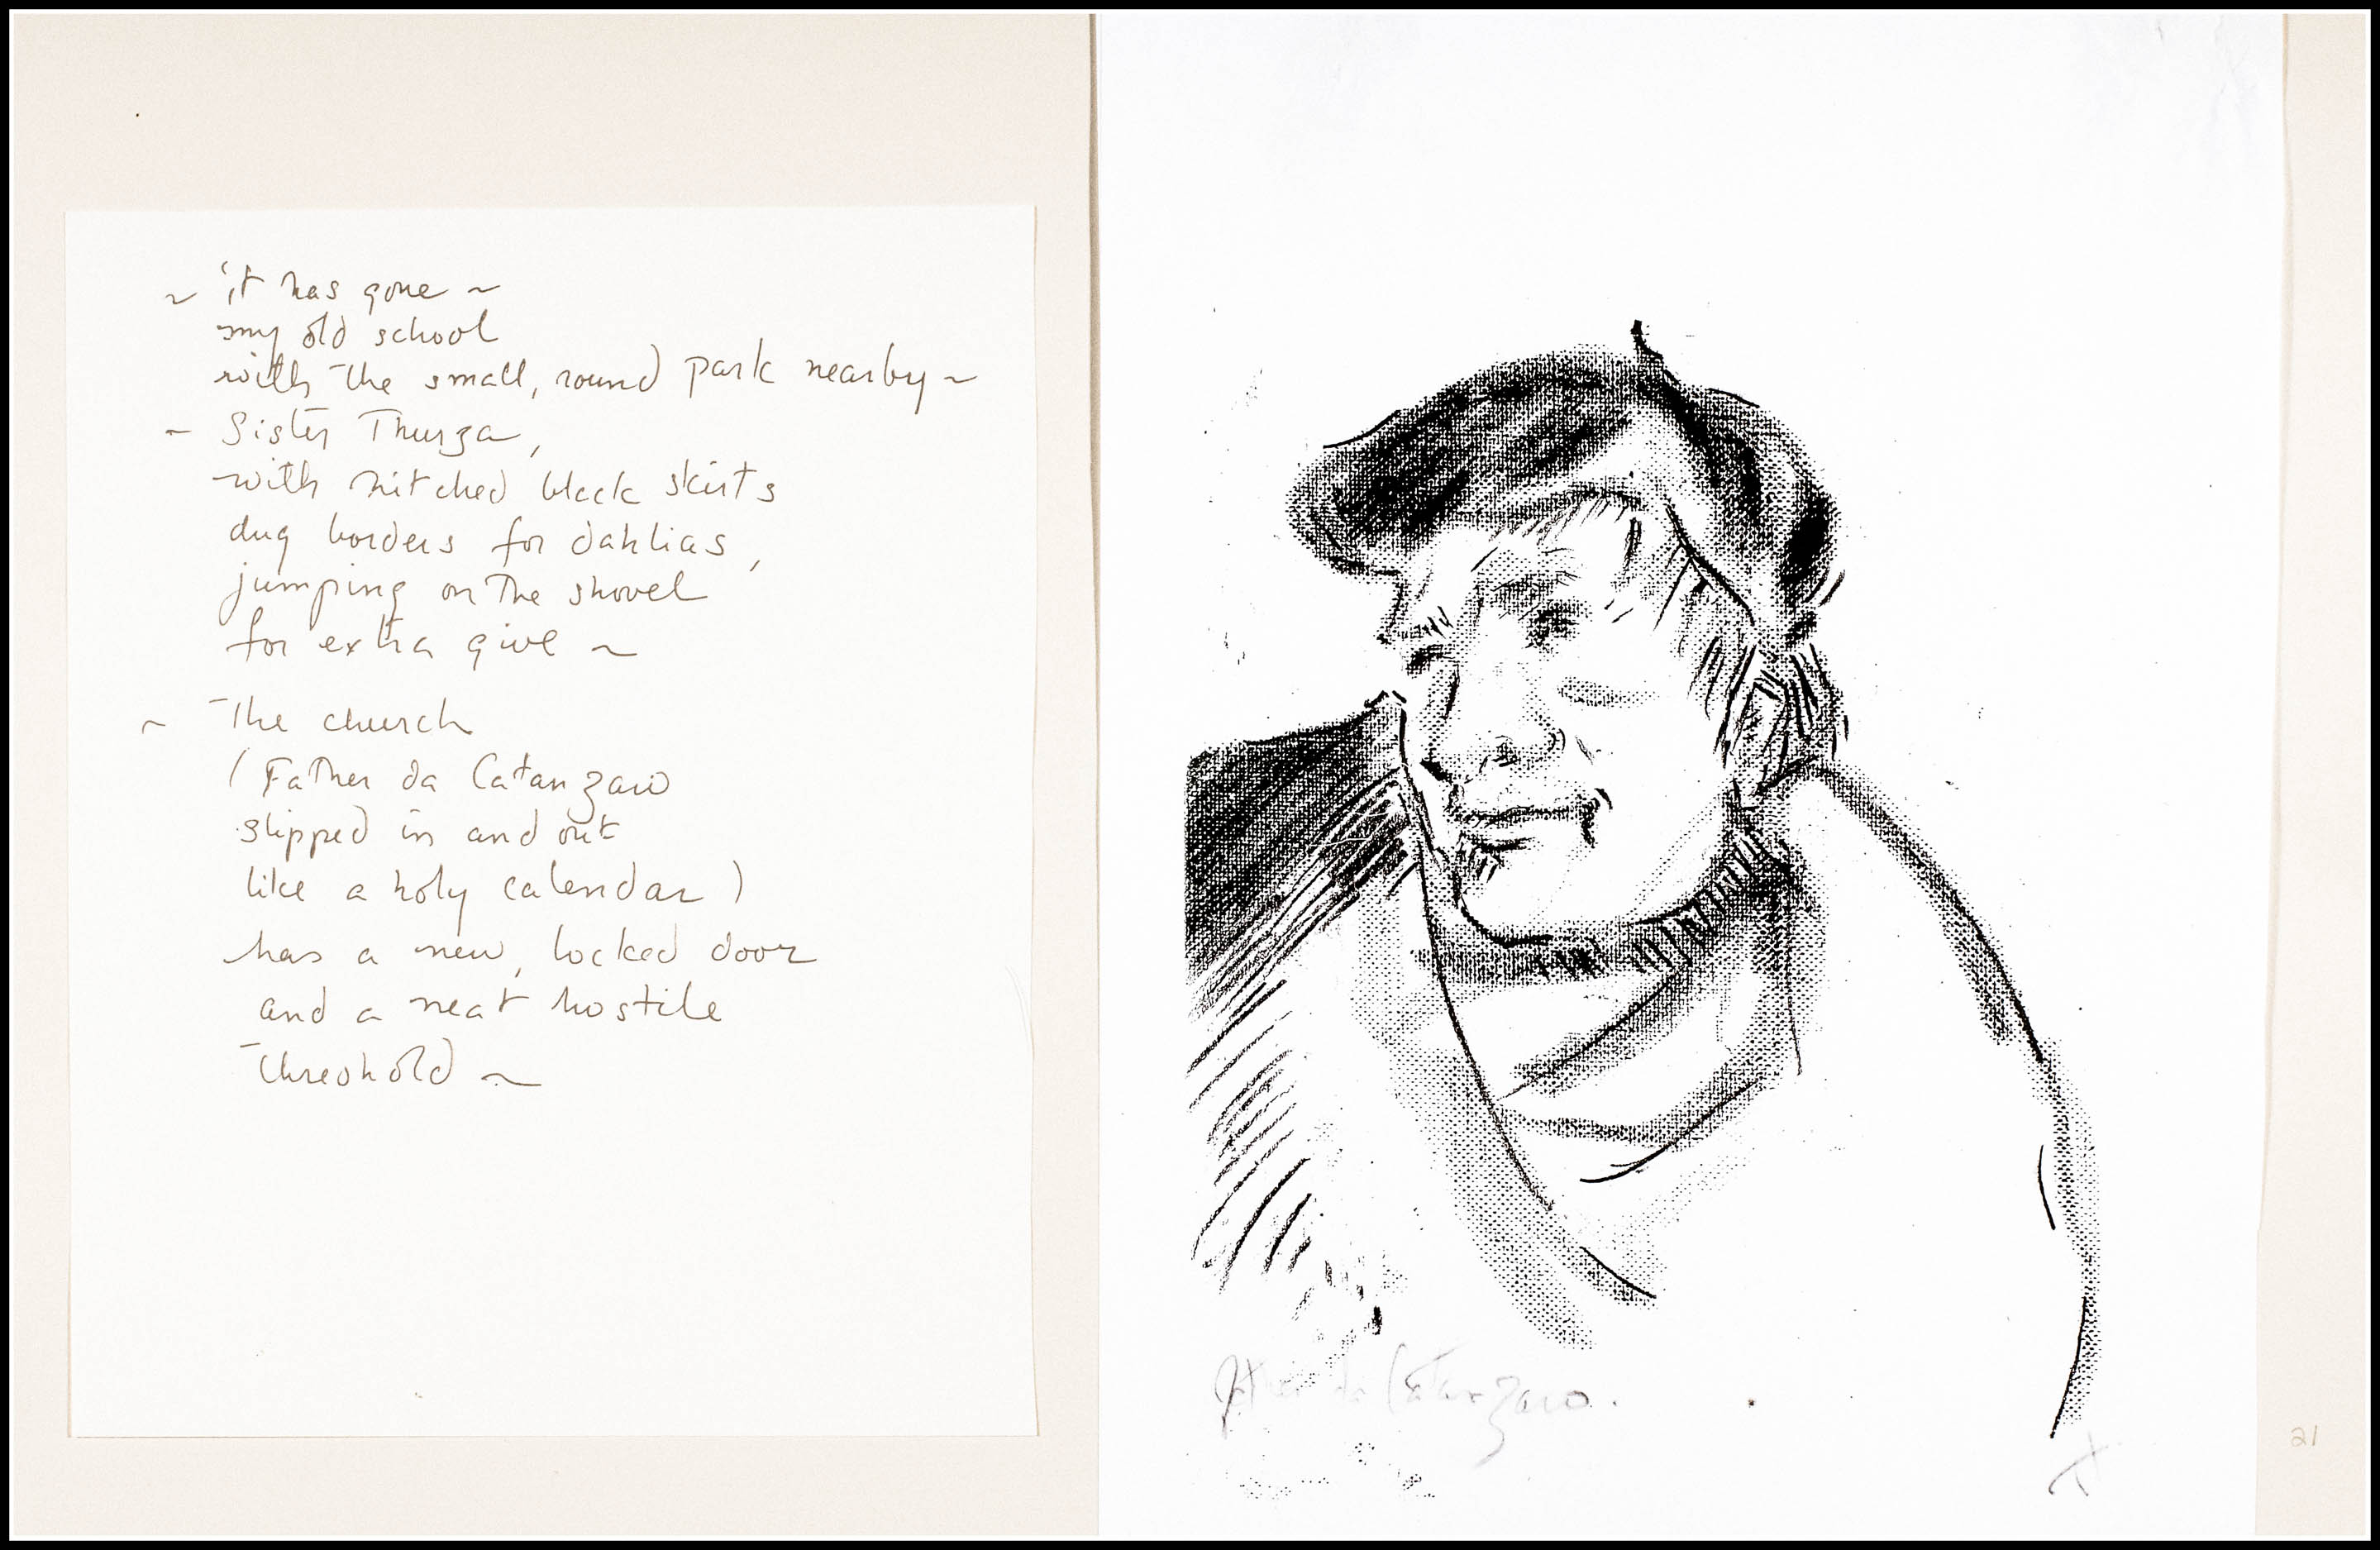 ~ it has gone ~
my old school
with the small, round park nearby ~
~ Sister Thurza,
with hitched black skirts
dug borders for dahlias,
jumping on the shovel
for extra give ~
~ The church
(Father da Catanzaro
slipped in and out
like a holy calendar)
has a new, locked door
and a neat hostile
threshold ~
Father da Catanzaro.
21